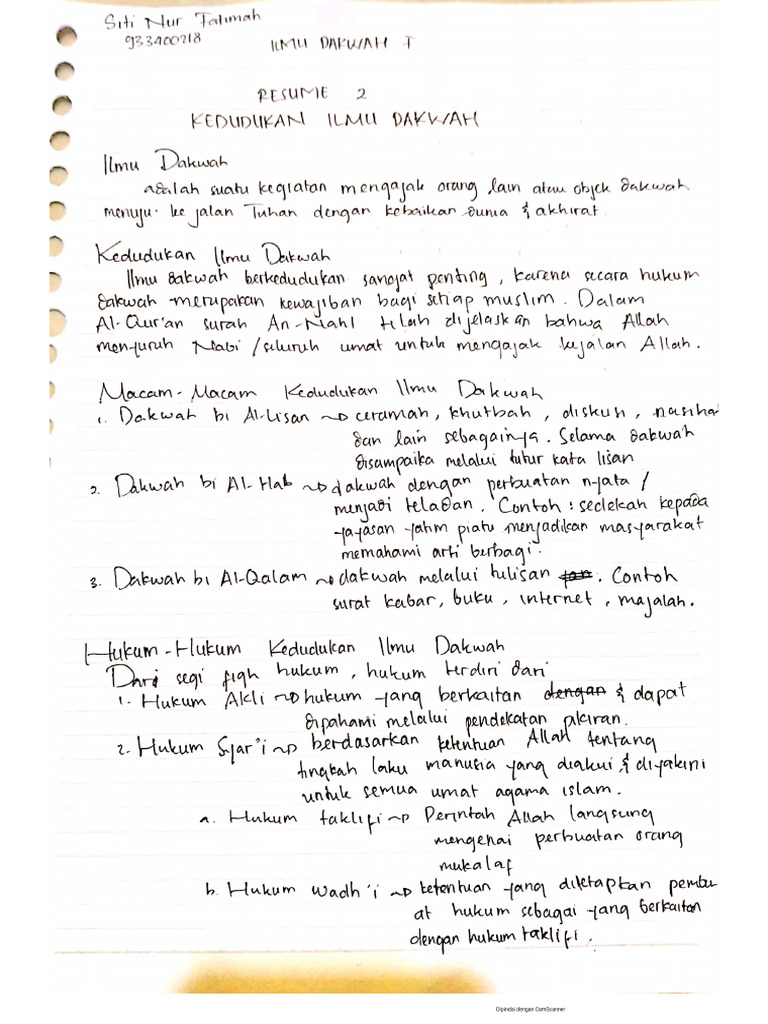 Siti Nur Fatimah
933400218
ILMU DAKWAH I
RESUME 2
KEDUDUKAN ILMU DAKWAH
Ilmu Dakwah
adalah suatu kegiatan mengajak orang lain atau objek dakwah
menuju ke jalan Tuhan dengan kebaikan dunia & akhirat.
Kedudukan Ilmu Dakwah
Ilmu dakwah berkedudukan sangat penting, karena secara hukum
dakwah merupakan kewajiban bagi setiap muslim. Dalam
Al-Qur'an surah An-Nahl telah dijelaskan bahwa Allah
menyuruh Nabi/seluruh umat untuk mengajak kejalan Allah.
Macam-Macam Kedudukan Ilmu Dakwah
1. Dakwah bi Al-Lisan ~> ceramah, khutbah, diskusi, nasiha
dan lain sebagainya. Selama dakwah
disampaika melalui tutur kata lisan
2. Dakwah bi Al-Hab ~> dakwah dengan perbuatan nyata/
menjadi teladan. Contoh : sedekah kepada
yayasan yatim piatu menjadikan masyarakat
memahami arti berbagi.
3. Dakwah bi Al-Qalam ~> dakwah melalui tulisan. Contoh
surat kabar, buku, internet, majalah.
Hukum-Hukum Kedudukan Ilmu Dakwah
Dari segi fiqh hukum, hukum terdiri dari
1. Hukum Akli ~> hukum yang berkaitan dengan & dapat
dipahami melalui pendekatan pikiran.
2. Hukum Syar'i ~> berdasarkan ketentuan Allah tentang
tingkah laku manusia yang diakui & diyakini
untuk semua umat agama islam.
a. Hukum taklifi ~> Perintah Allah langsung
mengenai perbuatan orang
mukalaf
b. Hukum wadh'i ~> ketentuan yang ditetapkan pembu
at hukum sebagai yang berkaitan
dengan hukum taklifi.
Dipindai dengan CamScanner